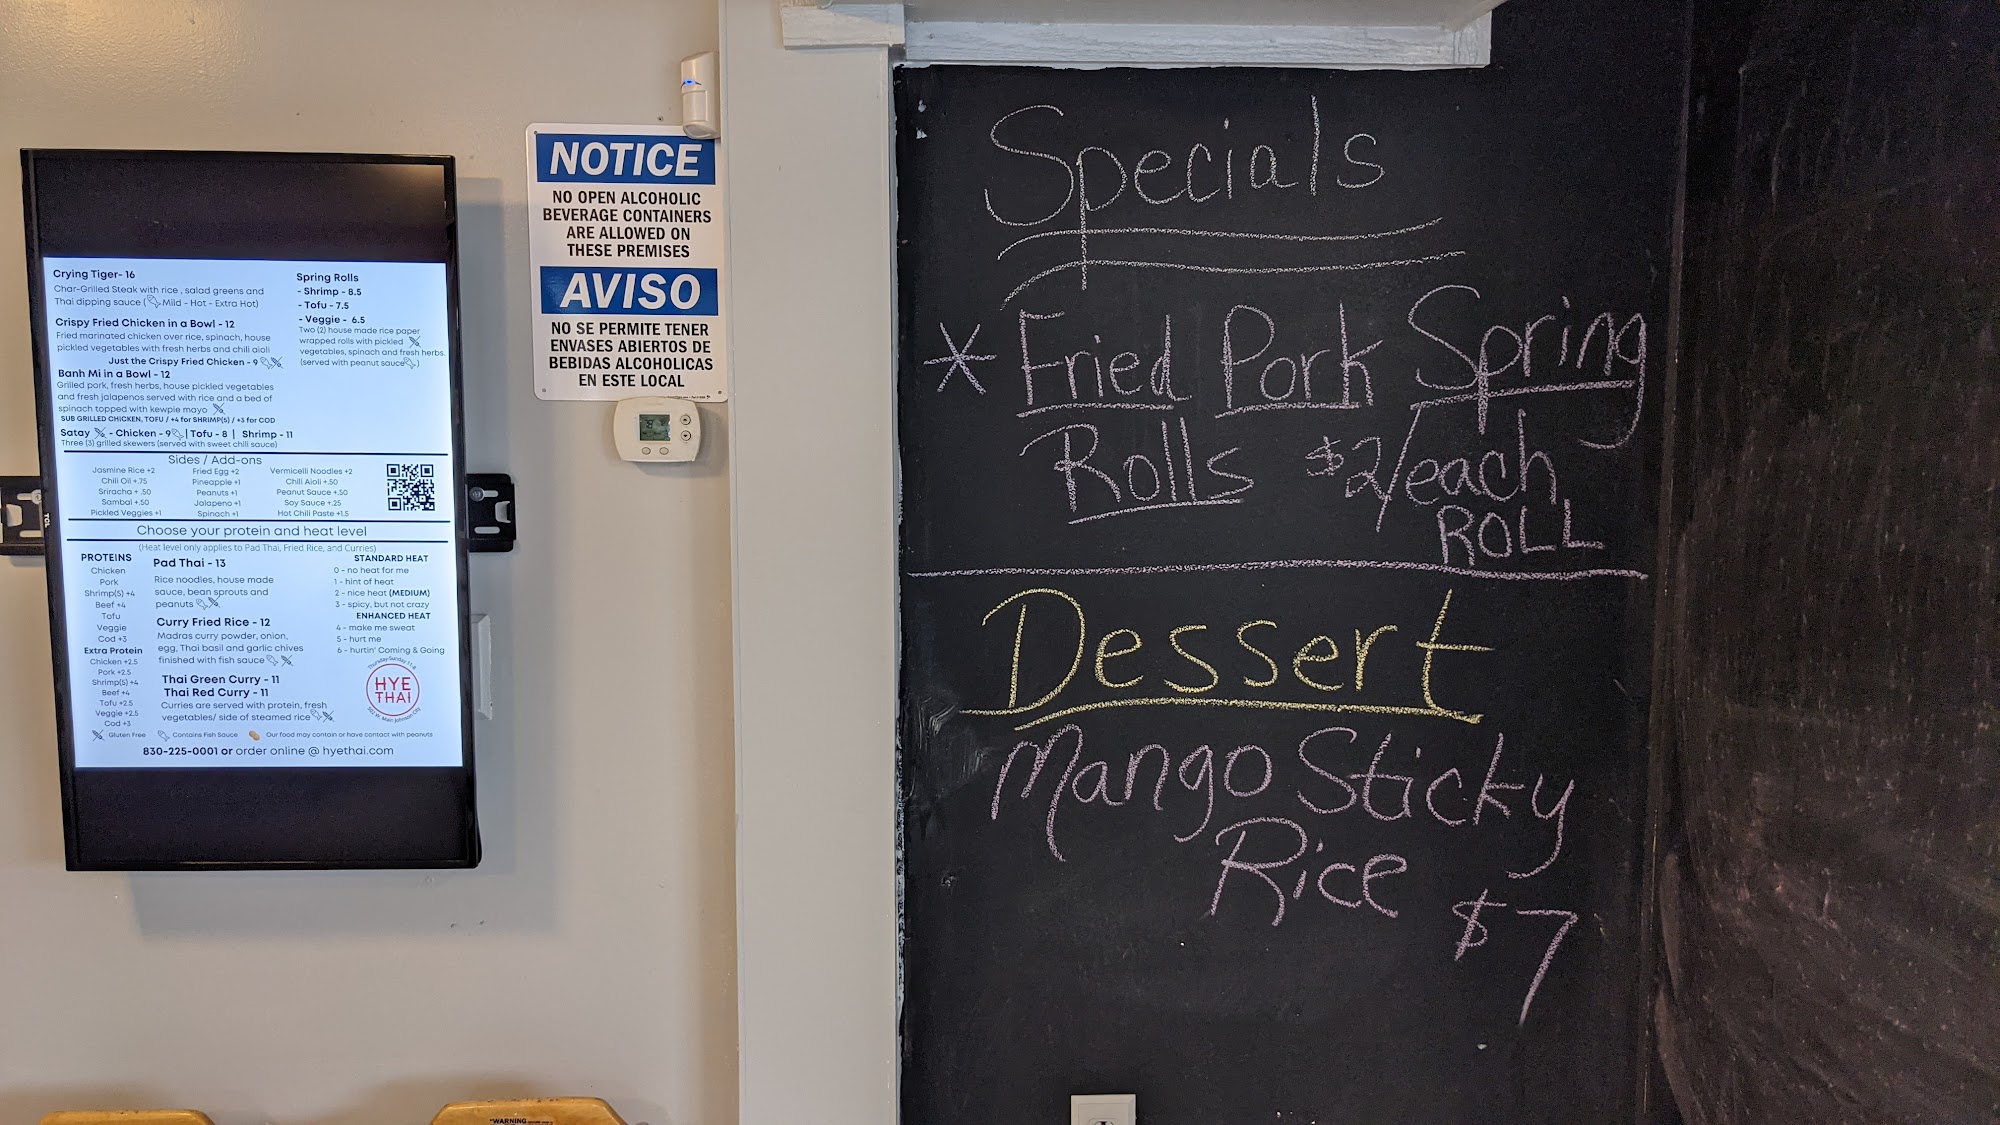 Crying Tiger- 16
Char-Grilled Steak with rice , salad greens and
Thai dipping sauce ( Mild - Hot - Extra Hot)
Crispy Fried Chicken in a Bowl - 12
Fried marinated chicken over rice, spinach, house
pickled vegetables with fresh herbs and chili aioli
Just the Crispy Fried Chicken - 9
Banh Mi in a Bowl - 12
Grilled pork, fresh herbs, house pickled vegetables
and fresh jalapenos served with rice and a bed of
spinach topped with kewpie mayo
SUB GRILLED CHICKEN, TOFU / +4 for SHRIMP(5) / +3 for COD
Satay - Chicken - 9 | Tofu - 8 | Shrimp - 11
Three (3) grilled skewers (served with sweet chili sauce)
Spring Rolls
- Shrimp - 8.5
- Tofu - 7.5
- Veggie - 6.5
Two (2) house made rice paper
wrapped rolls with pickled
vegetables, spinach and fresh herbs.
(served with peanut sauce )
Sides / Add-ons
Jasmine Rice +2
Chili Oil +.75
Sriracha + .50
Sambal +.50
Pickled Veggies +1
Fried Egg +2
Pineapple +1
Peanuts +1
Jalapeno +1
Spinach +1
Vermicelli Noodles +2
Chili Aioli +.50
Peanut Sauce +.50
Soy Sauce +.25
Hot Chili Paste +1.5
Choose your protein and heat level
(Heat level only applies to Pad Thai, Fried Rice, and Curries)
PROTEINS
Chicken
Pork
Shrimp(5) +4
Beef +4
Tofu
Veggie
Cod +3
Extra Protein
Chicken +2.5
Pork +2.5
Shrimp(5) +4
Beef +4
Tofu +2.5
Veggie +2.5
Cod +3
Pad Thai - 13
Rice noodles, house made
sauce, bean sprouts and
peanuts
Curry Fried Rice - 12
Madras curry powder, onion,
egg, Thai basil and garlic chives
finished with fish sauce
Thai Green Curry - 11
Thai Red Curry - 11
Curries are served with protein, fresh
vegetables/ side of steamed rice
STANDARD HEAT
0 - no heat for me
1 - hint of heat
2 - nice heat (MEDIUM)
3 - spicy, but not crazy
ENHANCED HEAT
4 - make me sweat
5 - hurt me
6 - hurtin' Coming & Going
Thursday-Sunday 11-8
HYE
THAI
Gluten Free
Contains Fish Sauce
Our food may contain or have contact with peanuts
830-225-0001 or order online @ hyethai.com
TCL
NOTICE
NO OPEN ALCOHOLIC
BEVERAGE CONTAINERS
ARE ALLOWED ON
THESE PREMISES
AVISO
NO SE PERMITE TENER
ENVASES ABIERTOS DE
BEBIDAS ALCOHOLICAS
EN ESTE LOCAL
Specials
* Fried Pork Spring
Rolls $2/each
ROLL
Dessert
Mango Sticky
Rice
$7
"WARNING